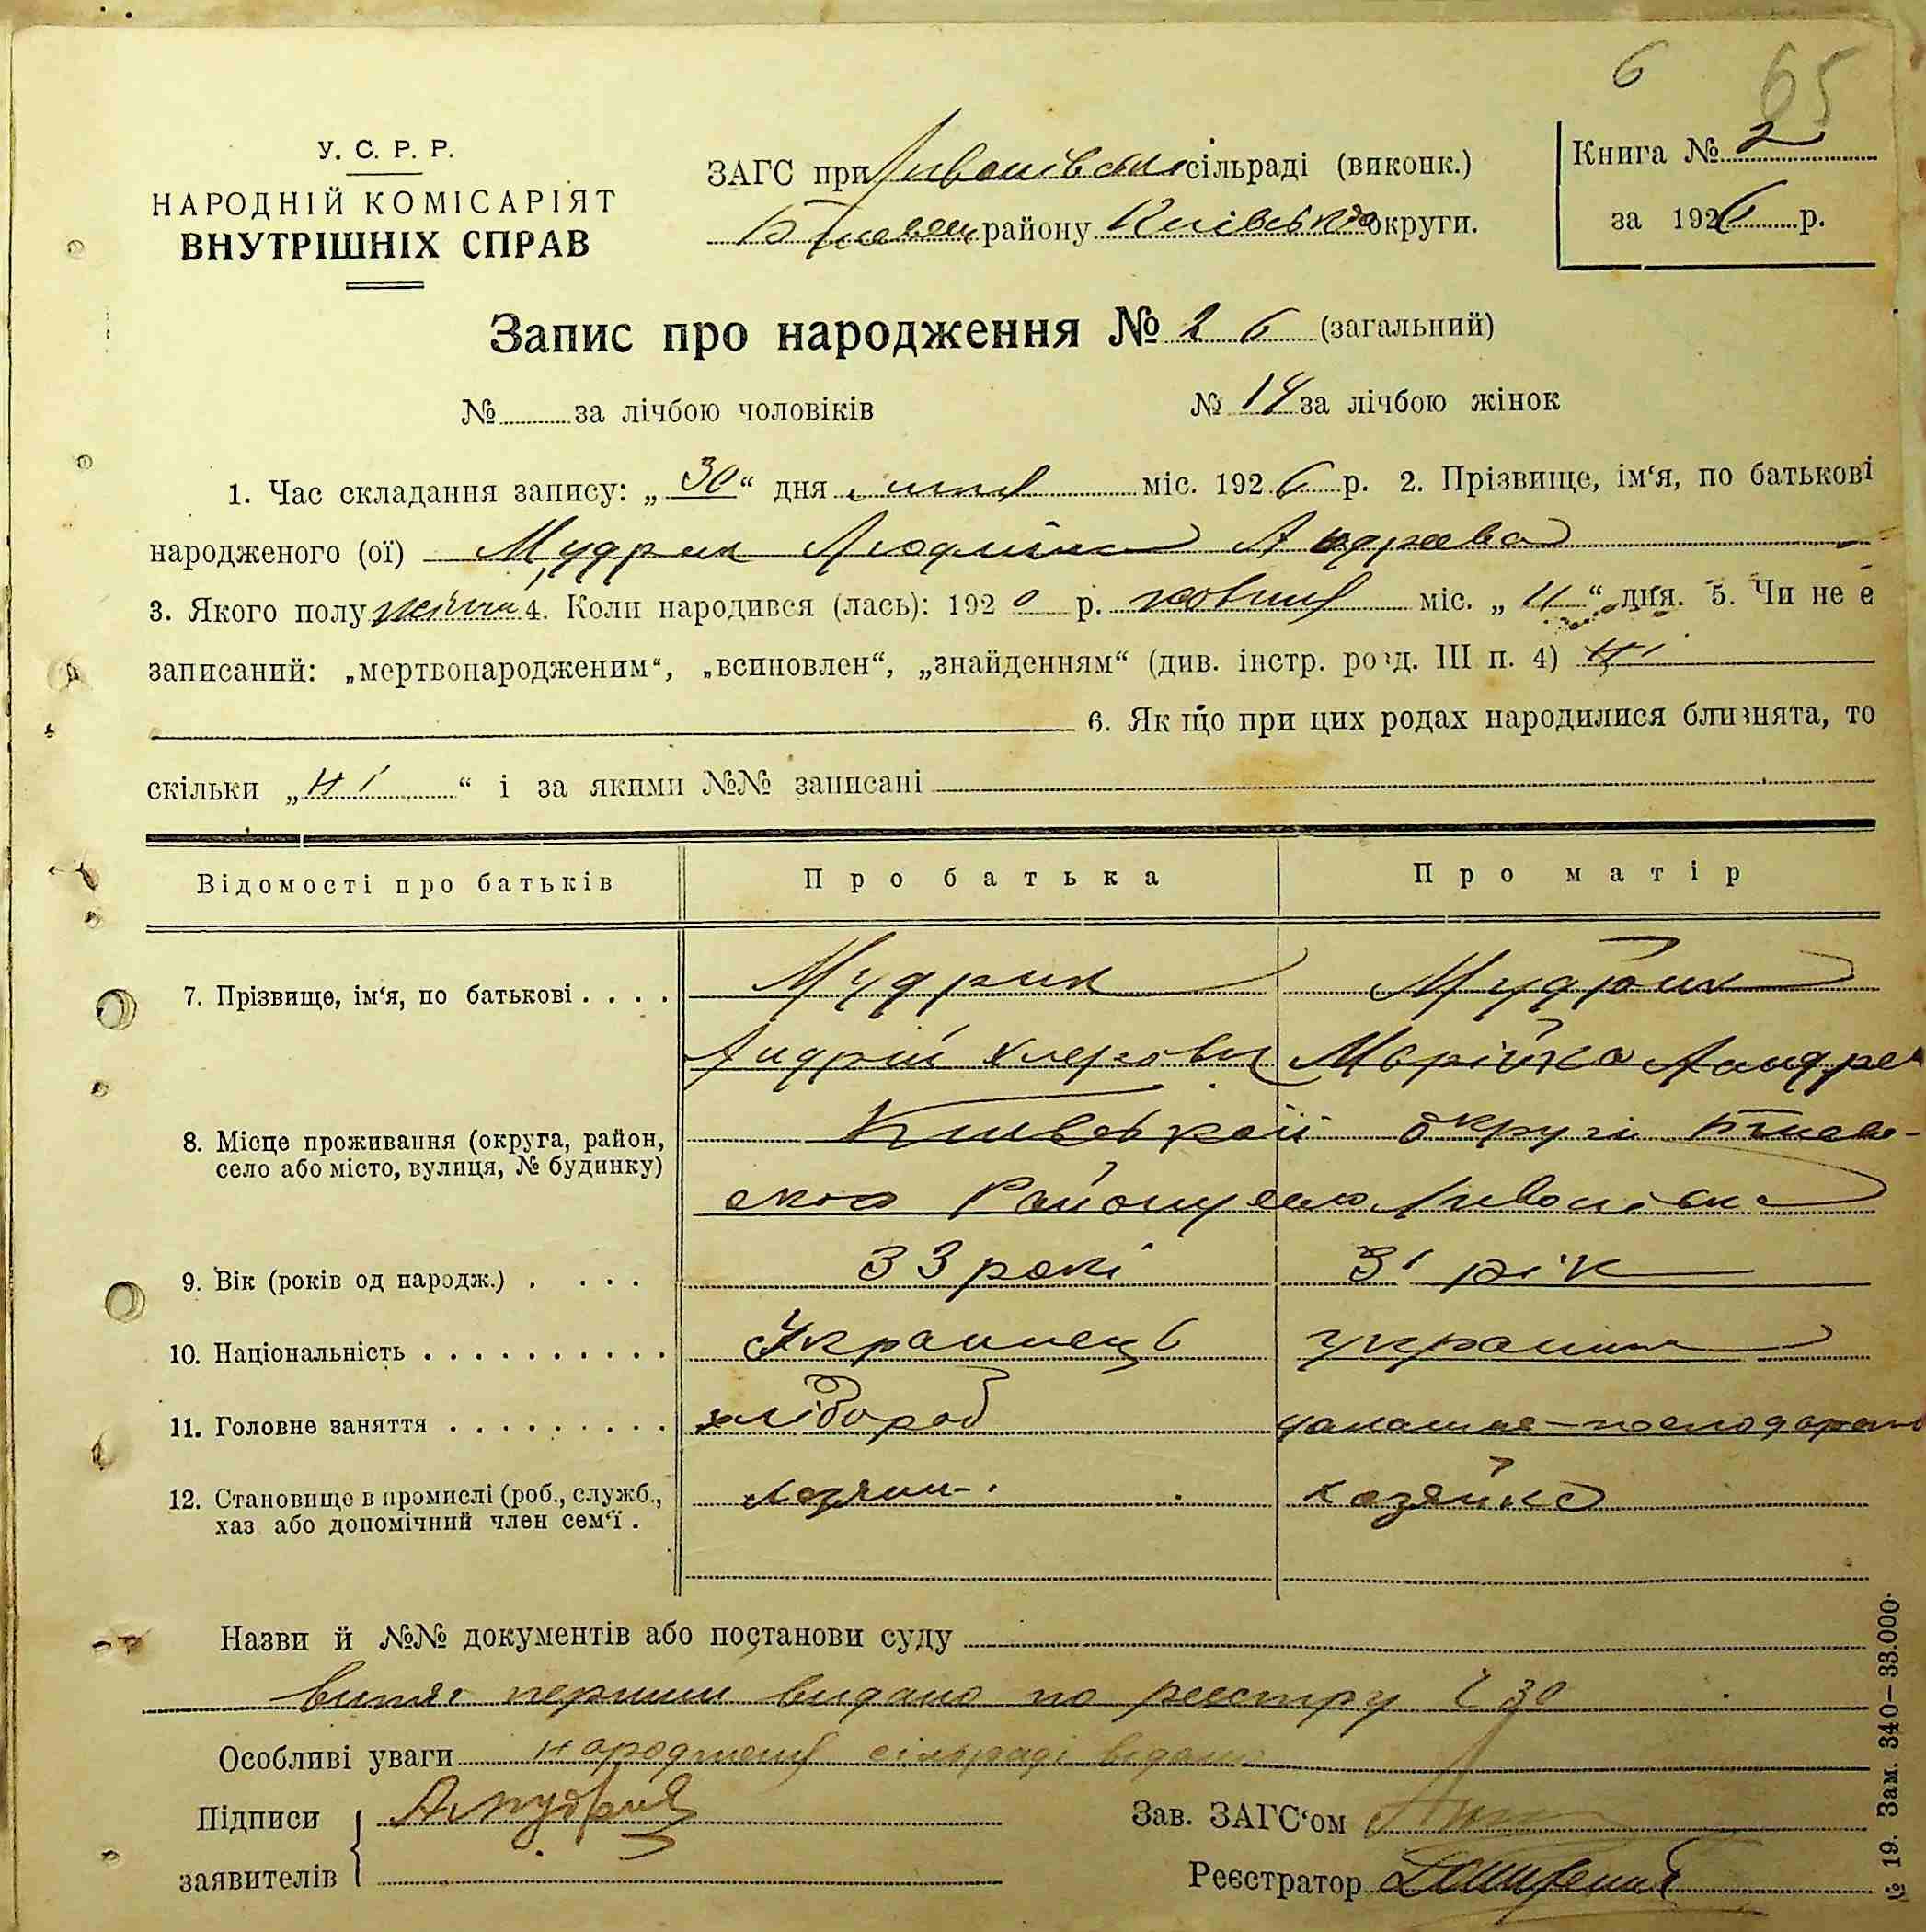 6 65
У. С. Р. Р.
НАРОДНІЙ КОМІСАРІЯТ
ВНУТРІШНІХ СПРАВ
ЗАГС при сільраді (виконк.)
району Київсько округи.
Книга № 2
за 1926 р.
Запис про народження № 26 (загальний)
№ за лічбою чоловіків № 14 за лічбою жінок
1. Час складання запису: „30“ дня міс. 1926 р. 2. Прізвище, ім‘я, по батькові
народженого (ої) Мудрик Людміла Андреева
3. Якого полу 4. Коли народився (лась): 1920 р. жовтня міс. „11“ дня. 5. Чи не є
записаний: „мертвонародженим“, „всиновлен“, „знайденням“ (див. інстр. розд. III п. 4) Ні
6. Як що при цих родах народилися близнята, то
скільки „Ні“ і за якими №№ записані
Відомості про батьків Про батька Про матір
7. Прізвище, ім‘я, по батькові . . . . Мудрик Мудрик
Андрій Марійка
8. Місце проживання (округа, район, Київської округи
село або місто, вулиця, № будинку)
Району село
9. Вік (років од народж.) . . . . 33 рокі 31 рік
10. Національність . . . . . . . . . . . Українець
11. Головне заняття . . . . . . . . . . хлібороб
12. Становище в промислі (роб., служб., хозяин. хозяйка
хаз або допомічний член сем‘ї .
Назви й №№ документів або постанови суду
витяг перший видано по реєстру 30
Особливі уваги сільраді
Підписи А Мудрик
заявителів
Зав. ЗАГС‘ом
Реєстратор
№ 19. Зам. 340—33.000.